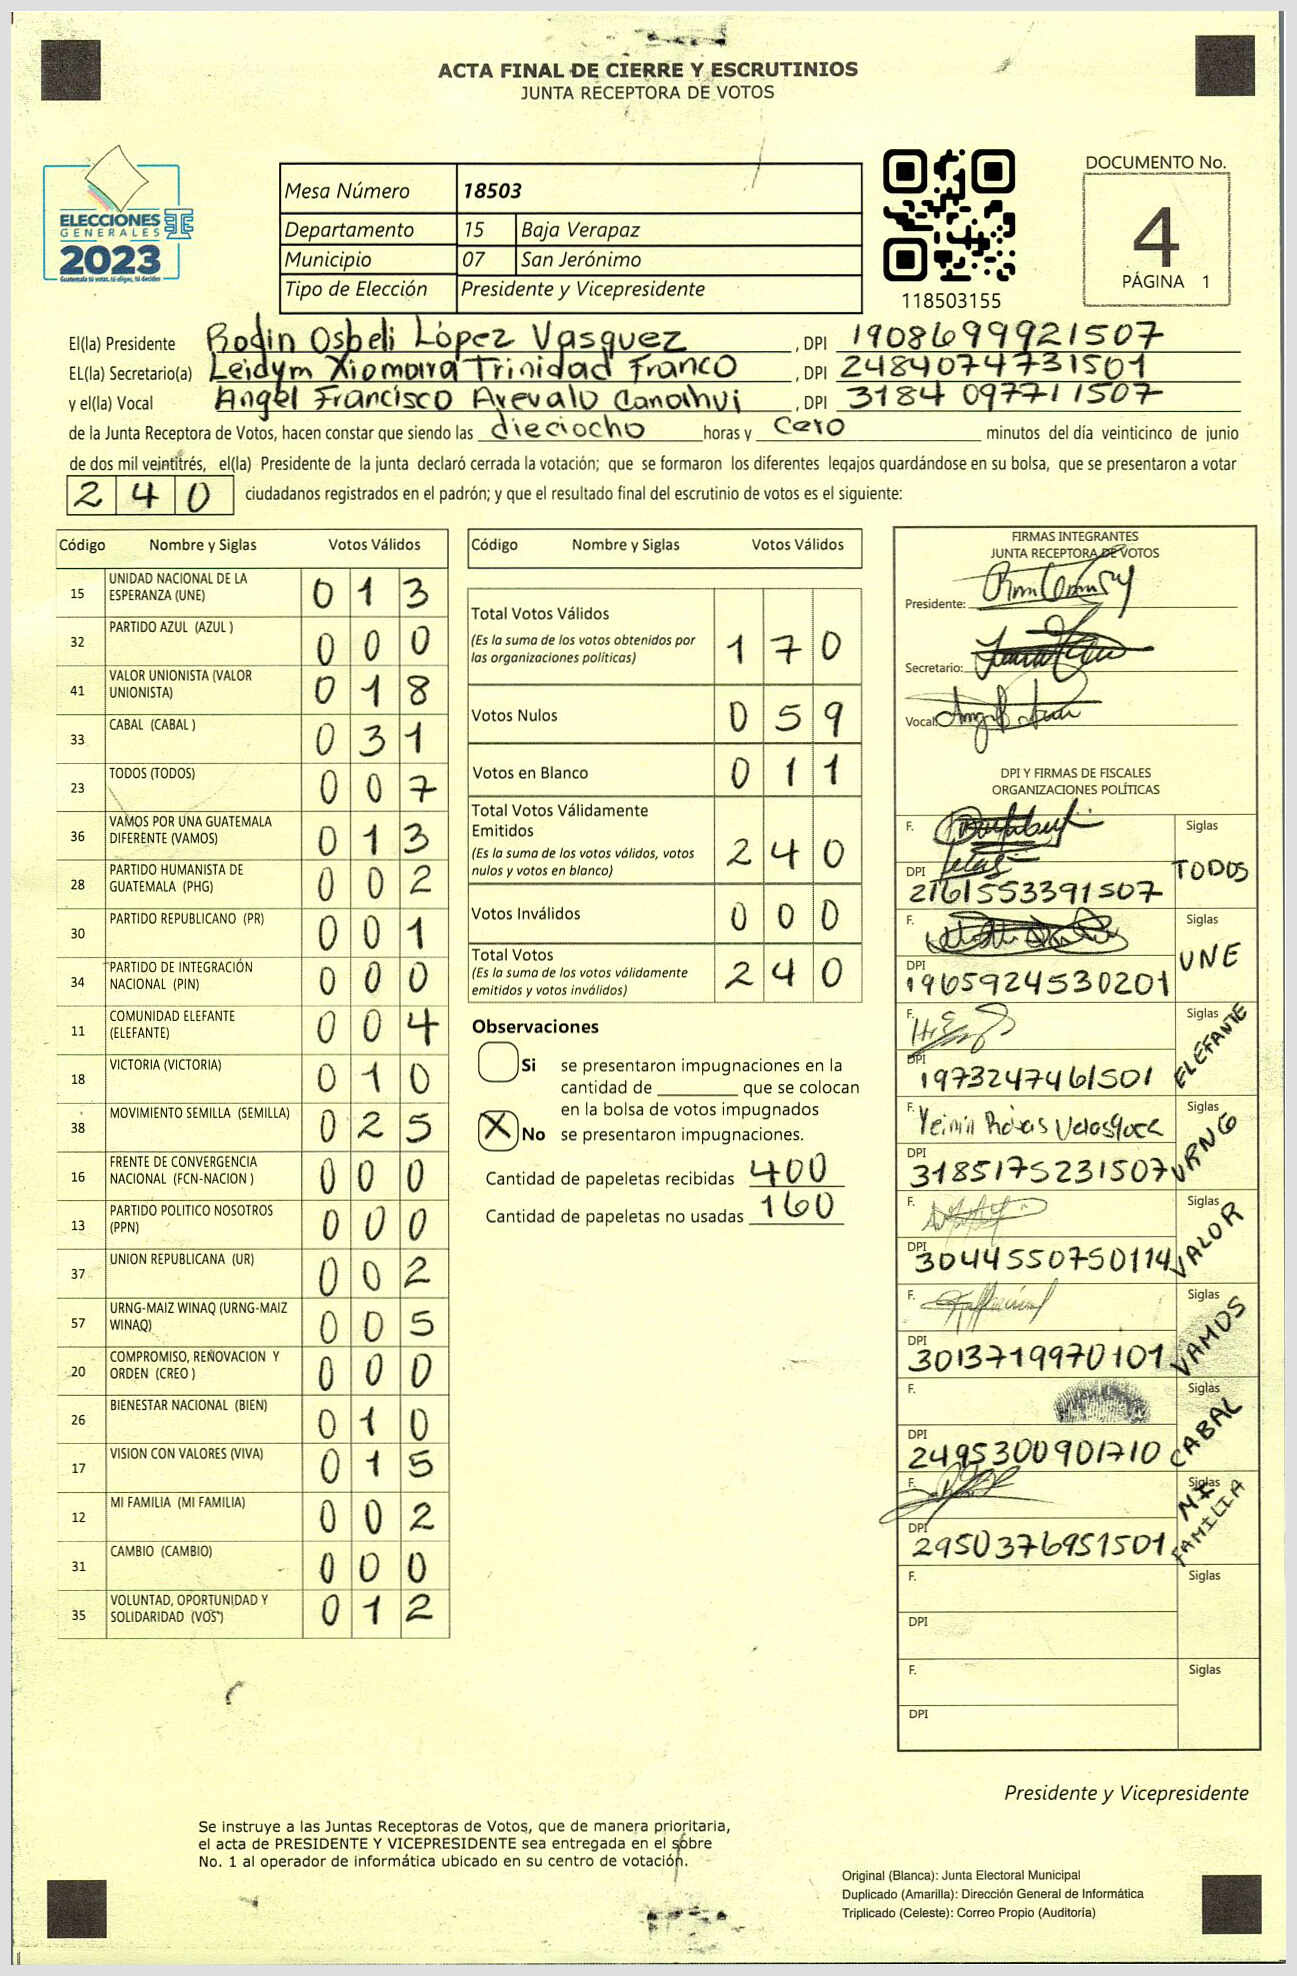 ACTA FINAL DE CIERRE Y ESCRUTINIOS
JUNTA RECEPTORA DE VOTOS
ELECCIONES
GENERALES
2023
Guatemala tú votas, tú eliges, tú decides
Mesa Número 18503
Departamento 15 Baja Verapaz
Municipio 07 San Jerónimo
Tipo de Elección Presidente y Vicepresidente
118503155
DOCUMENTO No.
4
PÁGINA 1
El(la) Presidente Rodin Osbeli López Vasquez, DPI 1908699921507
EL(la) Secretario(a) Leidym Xiomara Trinidad Franco, DPI 2484074731501
y el(la) Vocal Angel Francisco Arevalo Canahui, DPI 3184 097711507
de la Junta Receptora de Votos, hacen constar que siendo las dieciocho horas y cero minutos del día veinticinco de junio
de dos mil veintitrés, el(la) Presidente de la junta declaró cerrada la votación; que se formaron los diferentes legajos guardándose en su bolsa, que se presentaron a votar
240 ciudadanos registrados en el padrón; y que el resultado final del escrutinio de votos es el siguiente:
Código Nombre y Siglas Votos Válidos
15 UNIDAD NACIONAL DE LA ESPERANZA (UNE) 013
32 PARTIDO AZUL (AZUL ) 000
41 VALOR UNIONISTA (VALOR UNIONISTA) 018
33 CABAL (CABAL ) 031
23 TODOS (TODOS) 007
36 VAMOS POR UNA GUATEMALA DIFERENTE (VAMOS) 013
28 PARTIDO HUMANISTA DE GUATEMALA (PHG) 002
30 PARTIDO REPUBLICANO (PR) 001
34 PARTIDO DE INTEGRACIÓN NACIONAL (PIN) 000
11 COMUNIDAD ELEFANTE (ELEFANTE) 004
18 VICTORIA (VICTORIA) 010
38 MOVIMIENTO SEMILLA (SEMILLA) 025
16 FRENTE DE CONVERGENCIA NACIONAL (FCN-NACION ) 000
13 PARTIDO POLITICO NOSOTROS (PPN) 000
37 UNION REPUBLICANA (UR) 002
57 URNG-MAIZ WINAQ (URNG-MAIZ WINAQ) 005
20 COMPROMISO, RENOVACION Y ORDEN (CREO ) 000
26 BIENESTAR NACIONAL (BIEN) 010
17 VISION CON VALORES (VIVA) 015
12 MI FAMILIA (MI FAMILIA) 002
31 CAMBIO (CAMBIO) 000
35 VOLUNTAD, OPORTUNIDAD Y SOLIDARIDAD (VOS) 012
Código Nombre y Siglas Votos Válidos
Total Votos Válidos 170
(Es la suma de los votos obtenidos por
las organizaciones políticas)
Votos Nulos 059
Votos en Blanco 011
Total Votos Válidamente
Emitidos 240
(Es la suma de los votos válidos, votos
nulos y votos en blanco)
Votos Inválidos 000
Total Votos 240
(Es la suma de los votos válidamente
emitidos y votos inválidos)
Observaciones
Si se presentaron impugnaciones en la
cantidad de ________ que se colocan
en la bolsa de votos impugnados
X No se presentaron impugnaciones.
Cantidad de papeletas recibidas 400
Cantidad de papeletas no usadas 160
FIRMAS INTEGRANTES
JUNTA RECEPTORA DE VOTOS
Presidente:
Secretario:
Vocal:
DPI Y FIRMAS DE FISCALES
ORGANIZACIONES POLÍTICAS
F. Siglas
DPI 2161553391507 TODOS
F. Siglas
DPI 1965924530201 UNE
F. Siglas
DPI 1973247461501 ELEFANTE
F. Siglas
DPI 3185175231507 URNG
F. Siglas
DPI 3044550750114 VALOR
F. Siglas
DPI 3013719970101 VAMOS
F. Siglas
DPI 2495300901710 CABAL
F. Siglas
DPI 2950376951501 MI FAMILIA
F. Siglas
DPI
F. Siglas
DPI
Presidente y Vicepresidente
Se instruye a las Juntas Receptoras de Votos, que de manera prioritaria,
el acta de PRESIDENTE Y VICEPRESIDENTE sea entregada en el sobre
No. 1 al operador de informática ubicado en su centro de votación.
Original (Blanca): Junta Electoral Municipal
Duplicado (Amarilla): Dirección General de Informática
Triplicado (Celeste): Correo Propio (Auditoría)